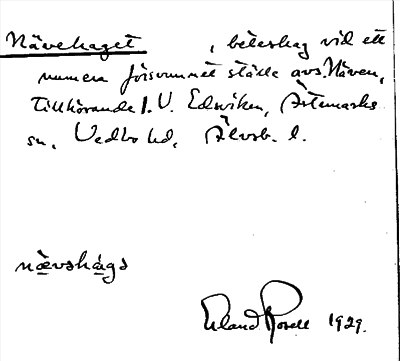 Nävehaget, beteshag vid ett
numera försvunnet ställe avs. Näven,
tillhörande 1. V. Edsviken, Ärtemarks
sn, Vedbo hd, Älvsb. l.
nævshàgs
Erland Rosell 1929.